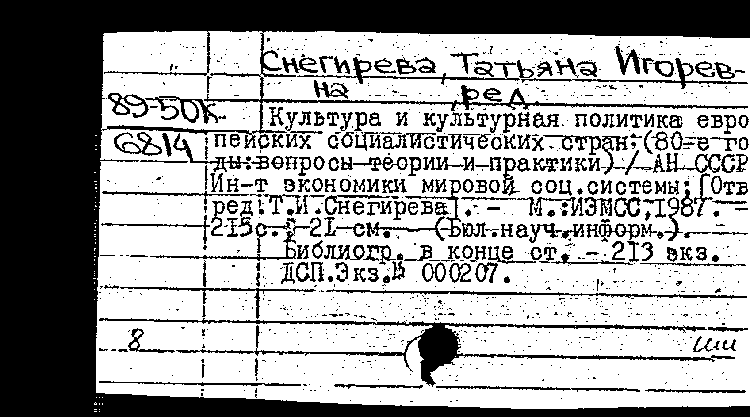 Снегирева, Татьяна Игорев-
на ,ред.
89-50К
6814
Культура и культурная политика евро
пейских социалистических стран:(80-е го
ды:вопросы теории и практики) / АН СССР
Ин-т экономики мировой соц.системы; [Отв
ред.Т.И.Снегирева]. - М.:ИЭМСС,1987. -
215с.; 21 см. - (Бюл.науч.информ.).
Библиогр. в конце ст. - 213 экз.
ДСП.Экз.№ 000207.
8